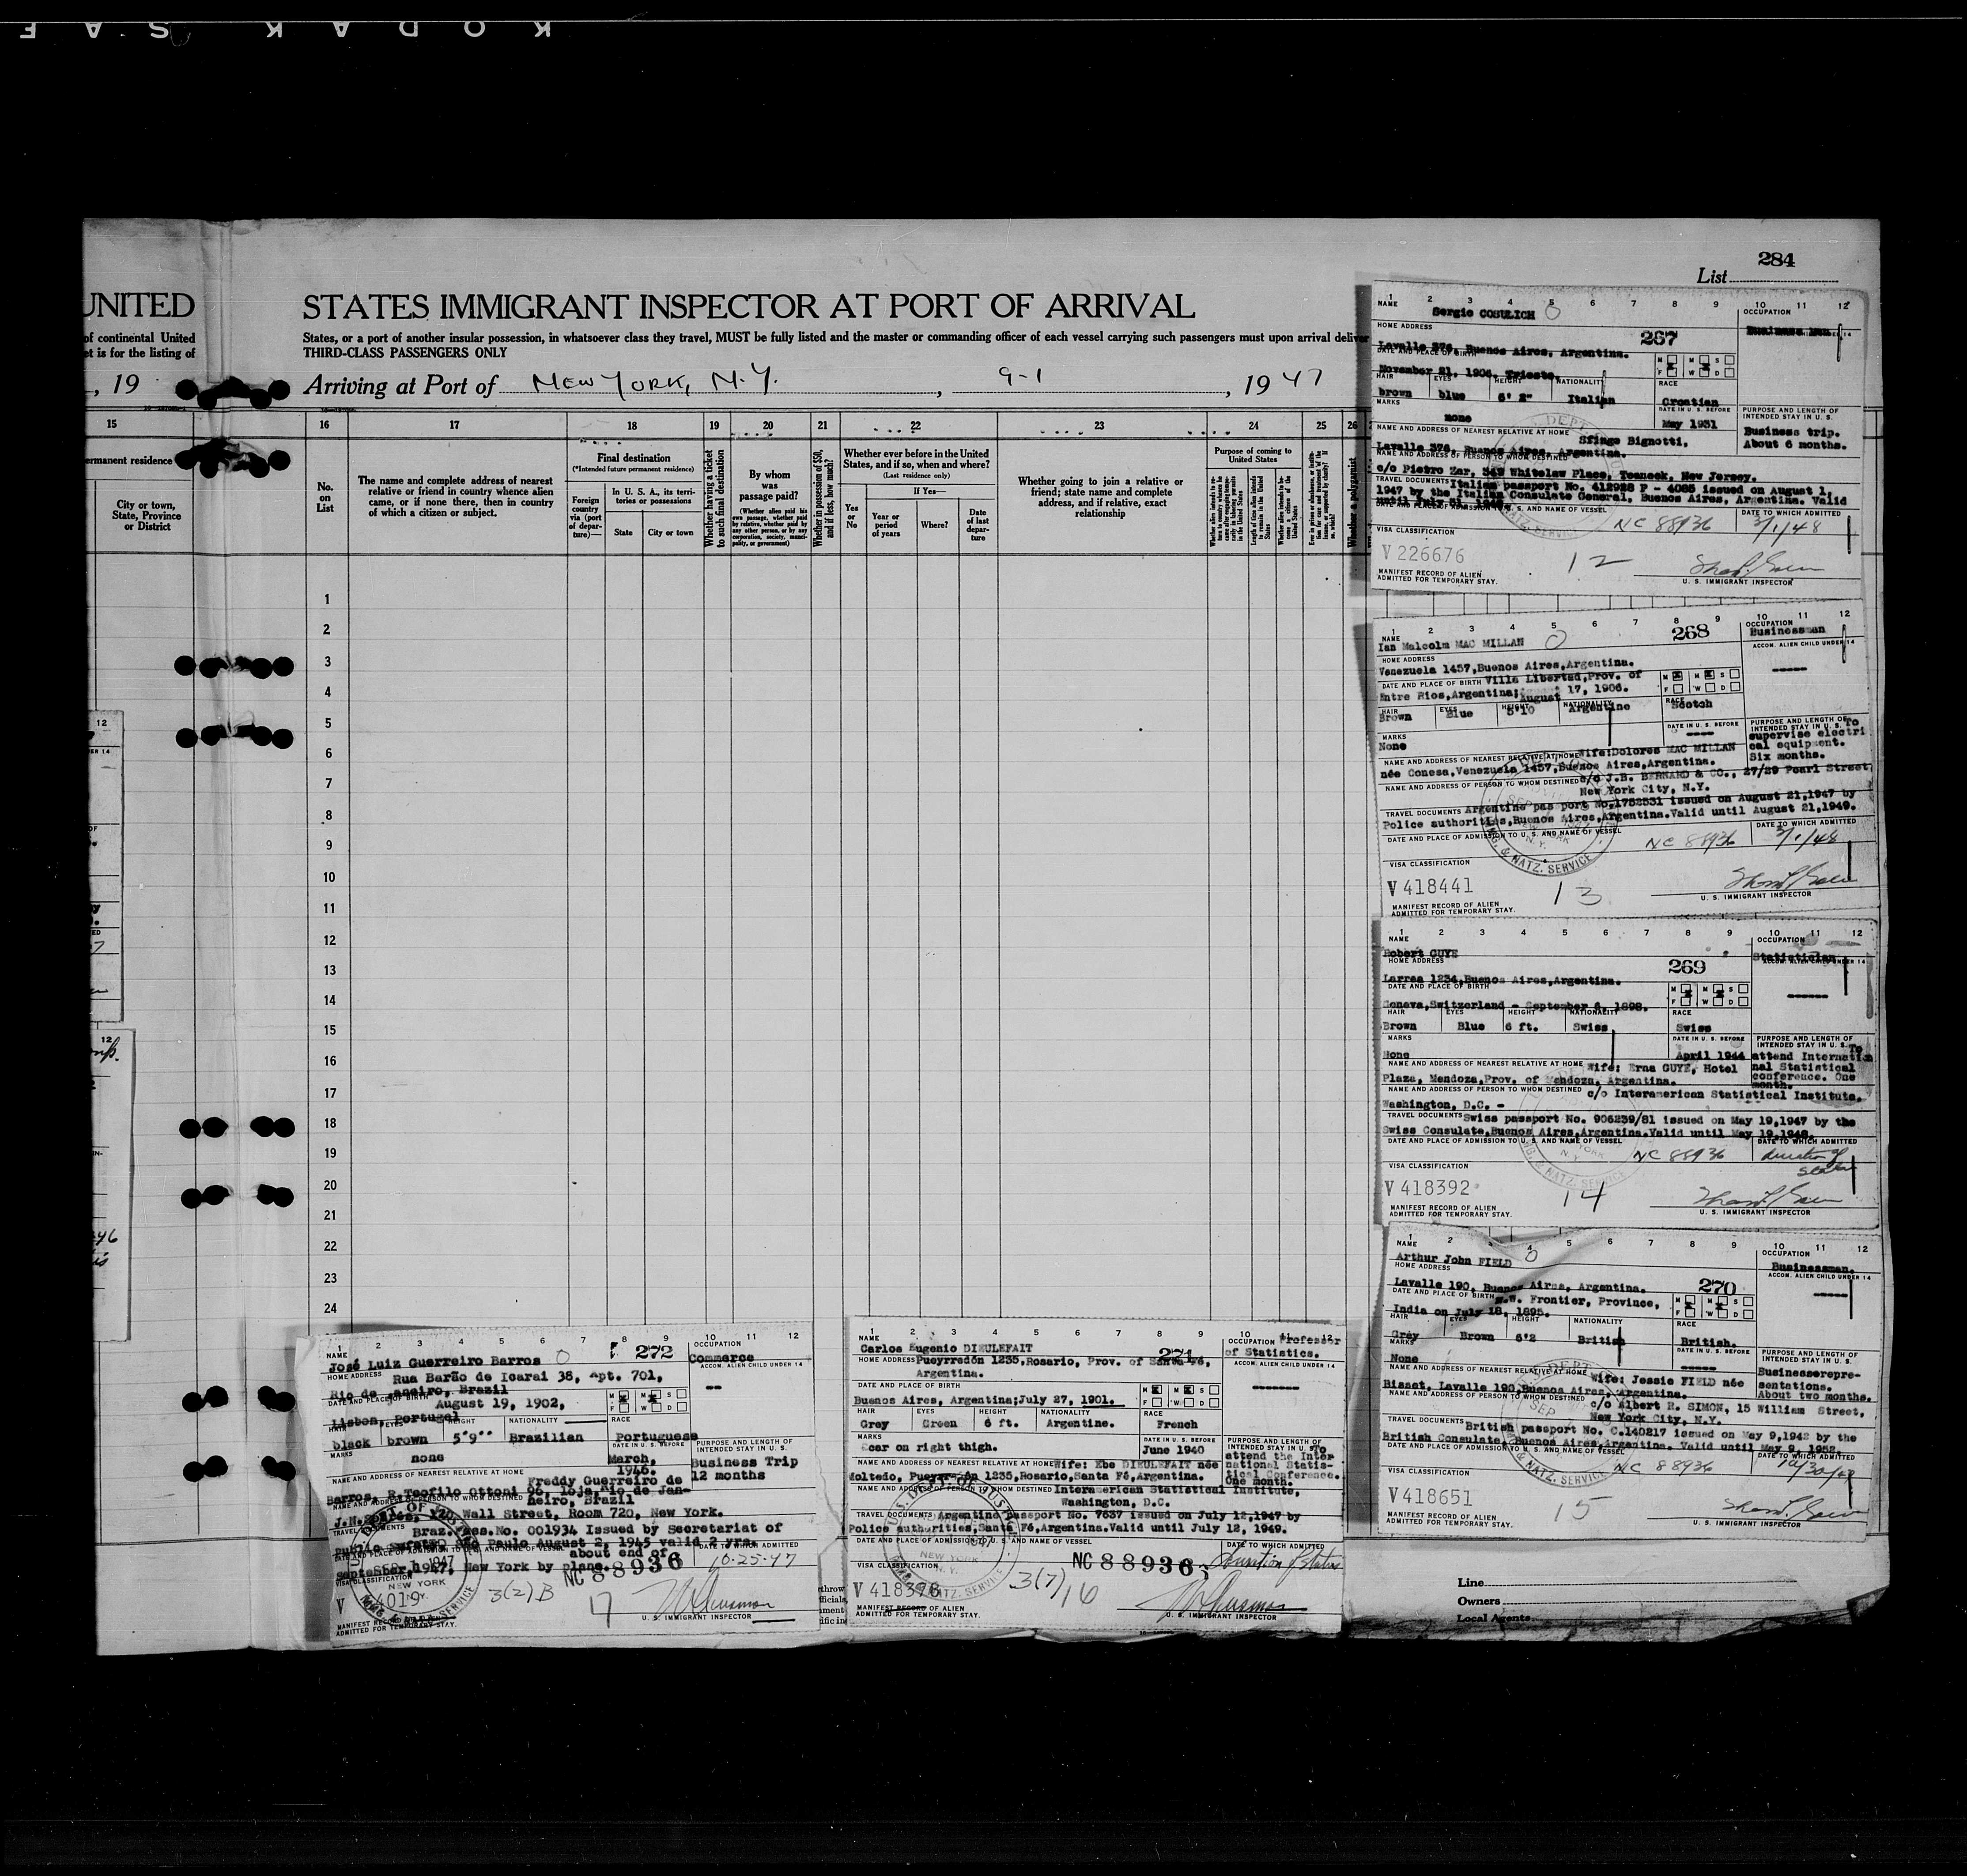 KODAK SAFE
284
List
UNITED STATES IMMIGRANT INSPECTOR AT PORT OF ARRIVAL
of continental United States, or a port of another insular possession, in whatsoever class they travel, MUST be fully listed and the master or commanding officer of each vessel carrying such passengers must upon arrival deliver
et is for the listing of THIRD-CLASS PASSENGERS ONLY
, 19
Arriving at Port of NEW YORK, N.Y. , 9-1 , 1947
15 16 17 18 19 20 21 22 23 24 25 26
ermanent residence
City or town, State, Province or District
No. on List
The name and complete address of nearest relative or friend in country whence alien came, or if none there, then in country of which a citizen or subject.
Final destination
(*Intended future permanent residence)
Foreign country via (port of departure)—
In U. S. A., its territories or possessions
State
City or town
Whether having a ticket to such final destination
By whom was passage paid?
(Whether alien paid his own passage, whether paid by relative, whether paid by any other person, or by any corporation, society, municipality, or government)
Whether in possession of $50, and if less, how much?
Whether ever before in the United States, and if so, when and where?
(Last residence only)
If Yes—
Yes or No
Year or period of years
Where?
Date of last departure
Whether going to join a relative or friend; state name and complete address, and if relative, exact relationship
Purpose of coming to United States
Whether a polygamist
1
2
3
4
5
6
7
8
9
10
11
12
13
14
15
16
17
18
19
20
21
22
23
24
1 2 3 4 5 6 7 8 9 10 11 12
NAME
Sergio COSULICH
267
OCCUPATION
Business man
HOME ADDRESS
Lavalle 376, Buenos Aires, Argentina.
DATE AND PLACE OF BIRTH
November 21, 1906, Trieste.
HAIR EYES HEIGHT NATIONALITY RACE
brown blue 6' 2" Italian Croatian
MARKS
none
DATE IN U. S. BEFORE
May 1931
PURPOSE AND LENGTH OF INTENDED STAY IN U. S.
Business trip.
About 6 months.
NAME AND ADDRESS OF NEAREST RELATIVE AT HOME
Sfinge Bignotti,
Lavalle 376, Buenos Aires, Argentina.
NAME AND ADDRESS OF PERSON TO WHOM DESTINED
c/o Pietro Zar, 349 Whitelaw Place, Teaneck, New Jersey.
TRAVEL DOCUMENTS Italian passport No. 412928 P - 4085 issued on August 1,
1947 by the Italian Consulate General, Buenos Aires, Argentina. Valid
until July 31, 1948.
DATE AND PLACE OF ADMISSION TO U. S. AND NAME OF VESSEL
NC 88936
DATE TO WHICH ADMITTED
3/1/48
VISA CLASSIFICATION
V 226676
12
MANIFEST RECORD OF ALIEN ADMITTED FOR TEMPORARY STAY.
U. S. IMMIGRANT INSPECTOR
1 2 3 4 5 6 7 8 9 10 11 12
NAME
Ian Malcolm MAC MILLAN
268
OCCUPATION
Businessman
ACCOM. ALIEN CHILD UNDER 14
HOME ADDRESS
Venezuela 1457,Buenos Aires,Argentina.
DATE AND PLACE OF BIRTH Villa Libertad,Prov. of
Entre Rios,Argentina; August 17, 1906.
HAIR EYES HEIGHT NATIONALITY RACE
Brown Blue 5'10 Argentine Scotch
MARKS
None
DATE IN U. S. BEFORE
----
PURPOSE AND LENGTH OF INTENDED STAY IN U. S. To
supervise electri
cal equipment.
Six months.
NAME AND ADDRESS OF NEAREST RELATIVE AT HOME Wife:Dolores MAC MILLAN
née Conesa,Venezuela 1457,Buenos Aires,Argentina.
NAME AND ADDRESS OF PERSON TO WHOM DESTINED c/o J.B. BERNARD & CO., 27/29 Pearl Street,
New York City, N.Y.
TRAVEL DOCUMENTS Argentine pas port No.1752531 issued on August 21,1947 by
Police authorities,Buenos Aires,Argentina.Valid until August 21,1949.
DATE AND PLACE OF ADMISSION TO U. S. AND NAME OF VESSEL
NC 88936
DATE TO WHICH ADMITTED
3/1/48
VISA CLASSIFICATION
V 418441
13
MANIFEST RECORD OF ALIEN ADMITTED FOR TEMPORARY STAY.
U. S. IMMIGRANT INSPECTOR
1 2 3 4 5 6 7 8 9 10 11 12
NAME
Robert GUYE
269
OCCUPATION
Statistician
ACCOM. ALIEN CHILD UNDER 14
HOME ADDRESS
Larrea 1234,Buenos Aires,Argentina.
DATE AND PLACE OF BIRTH
Geneva,Switzerland - September 6, 1898.
HAIR EYES HEIGHT NATIONALITY RACE
Brown Blue 6 ft. Swiss Swiss
MARKS
None
DATE IN U. S. BEFORE
April 1944
PURPOSE AND LENGTH OF INTENDED STAY IN U. S. To
attend Internatio
nal Statistical
conference. One
month.
NAME AND ADDRESS OF NEAREST RELATIVE AT HOME Wife: Erna GUYE, Hotel
Plaza, Mendoza,Prov. of Mendoza, Argentina.
NAME AND ADDRESS OF PERSON TO WHOM DESTINED c/o Interamerican Statistical Institute,
Washington, D.C. -
TRAVEL DOCUMENTS Swiss passport No. 906239/81 issued on May 19,1947 by the
Swiss Consulate,Buenos Aires,Argentina.Valid until May 19,1948.
DATE AND PLACE OF ADMISSION TO U. S. AND NAME OF VESSEL
NC 88936
DATE TO WHICH ADMITTED
duration of status
VISA CLASSIFICATION
V 418392
14
MANIFEST RECORD OF ALIEN ADMITTED FOR TEMPORARY STAY.
U. S. IMMIGRANT INSPECTOR
1 2 3 4 5 6 7 8 9 10 11 12
NAME
Arthur John FIELD
270
OCCUPATION
Businessman.
ACCOM. ALIEN CHILD UNDER 14
HOME ADDRESS
Lavalle 190, Buenos Aires, Argentina.
DATE AND PLACE OF BIRTH N.W. Frontier, Province,
India on July 18, 1895.
HAIR EYES HEIGHT NATIONALITY RACE
Gray Brown 6'2 British British.
MARKS
None
DATE IN U. S. BEFORE
-----
PURPOSE AND LENGTH OF INTENDED STAY IN U. S.
Businessrepre-
sentations.
About two months.
NAME AND ADDRESS OF NEAREST RELATIVE AT HOME Wife: Jessie FIELD née
Bisset, Lavalle 190,Buenos Aires, Argentina.
NAME AND ADDRESS OF PERSON TO WHOM DESTINED c/o Albert R. SIMON, 15 William Street,
New York City, N.Y.
TRAVEL DOCUMENTS British passport No. C.140217 issued on May 9,1942 by the
British Consulate,Buenos Aires,Argentina. Valid until May 9, 1952.
DATE AND PLACE OF ADMISSION TO U. S. AND NAME OF VESSEL
NC 88936
DATE TO WHICH ADMITTED
VISA CLASSIFICATION
V 418651
15
MANIFEST RECORD OF ALIEN ADMITTED FOR TEMPORARY STAY.
U. S. IMMIGRANT INSPECTOR
1 2 3 4 5 6 7 8 9 10 11 12
NAME
José Luiz Guerreiro Barros
272
OCCUPATION
Commerce
ACCOM. ALIEN CHILD UNDER 14
--
HOME ADDRESS Rua Barão de Icarai 38, Apt. 701,
Rio de Janeiro, Brazil
DATE AND PLACE OF BIRTH August 19, 1902,
Lisbon, Portugal
HAIR EYES HEIGHT NATIONALITY RACE
black brown 5'9'' Brazilian Portuguese
MARKS
none
DATE IN U. S. BEFORE
March,
1946.
PURPOSE AND LENGTH OF INTENDED STAY IN U. S.
Business Trip
12 months
NAME AND ADDRESS OF NEAREST RELATIVE AT HOME Freddy Guerreiro de
Barros, R.Teofilo Ottoni 96, loja,Rio de Jan-
eiro, Brazil
NAME AND ADDRESS OF PERSON TO WHOM DESTINED
J.N. 120 Wall Street, Room 720, New York.
TRAVEL DOCUMENTS Braz.Pas.No. 001934 Issued by Secretariat of
Public Safety São Paulo August 2, 1945 valid 2 yrs.
about end of
September,1947, New York by plane.
NC 88936
DATE TO WHICH ADMITTED
10-25-47
VISA CLASSIFICATION
V 4019
3(2)B
17
MANIFEST RECORD OF ALIEN ADMITTED FOR TEMPORARY STAY.
U. S. IMMIGRANT INSPECTOR
1 2 3 4 5 6 7 8 9 10
NAME
Carlos Eugenio DIEULEFAIT
271
OCCUPATION Professor
of Statistics.
ACCOM. ALIEN CHILD UNDER 14
HOME ADDRESS Pueyrredón 1235,Rosario, Prov. of Santa Fé,
Argentina.
DATE AND PLACE OF BIRTH
Buenos Aires, Argentina;July 27, 1901.
HAIR EYES HEIGHT NATIONALITY RACE
Grey Green 6 ft. Argentine. French
MARKS
Scar on right thigh.
DATE IN U. S. BEFORE
June 1940
PURPOSE AND LENGTH OF INTENDED STAY IN U. S. To
attend the Inter
national Statis-
tical Conference.
One month.
NAME AND ADDRESS OF NEAREST RELATIVE AT HOME Wife: Ebe DIEULEFAIT née
Moltedo, Pueyrredón 1235,Rosario,Santa Fé,Argentina.
NAME AND ADDRESS OF PERSON TO WHOM DESTINED Interamerican Statistical Institute,
Washington, D.C.
TRAVEL DOCUMENTS Argentine passport No. 7637 issued on July 12,1947 by
Police authorities,Santa Fé,Argentina.Valid until July 12, 1949.
DATE AND PLACE OF ADMISSION TO U. S. AND NAME OF VESSEL
NC 88936
DATE TO WHICH ADMITTED
Duration of status
VISA CLASSIFICATION
V 418398
3(7)
16
MANIFEST RECORD OF ALIEN ADMITTED FOR TEMPORARY STAY.
U. S. IMMIGRANT INSPECTOR
Line
Owners
Local Agents